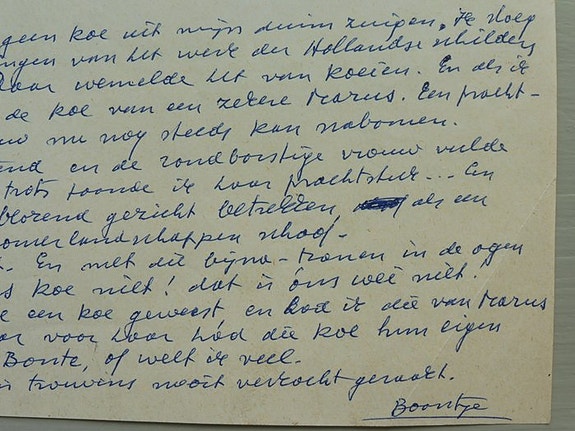 geen koe uit mijn duim zuigen. Ik sloeg
ingen van het werk der Hollandse schilders
daar wemelde het van koeien. En als ik
de koe van een zekere Marus. Een pracht-
uw nu nog steeds kan nabomen.
end en de rondborstige vrouw vulde
trots toonde ik haar prachtstuk... En
blozend gezicht betrekken, als een
omerlandschappen schoof.
En met die bijna-tranen in de ogen
s koe niet! dat is óns wéé niet!
e een koe geweest en had ik die van Marus
or voor haar hád die koe hun eigen
Bonte, of welt ik veel.
trouwens nooit verkocht geraakt.
Boontje